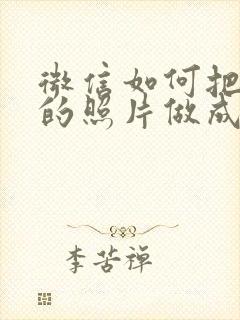 微信如何把
的照片做成
李苦禅